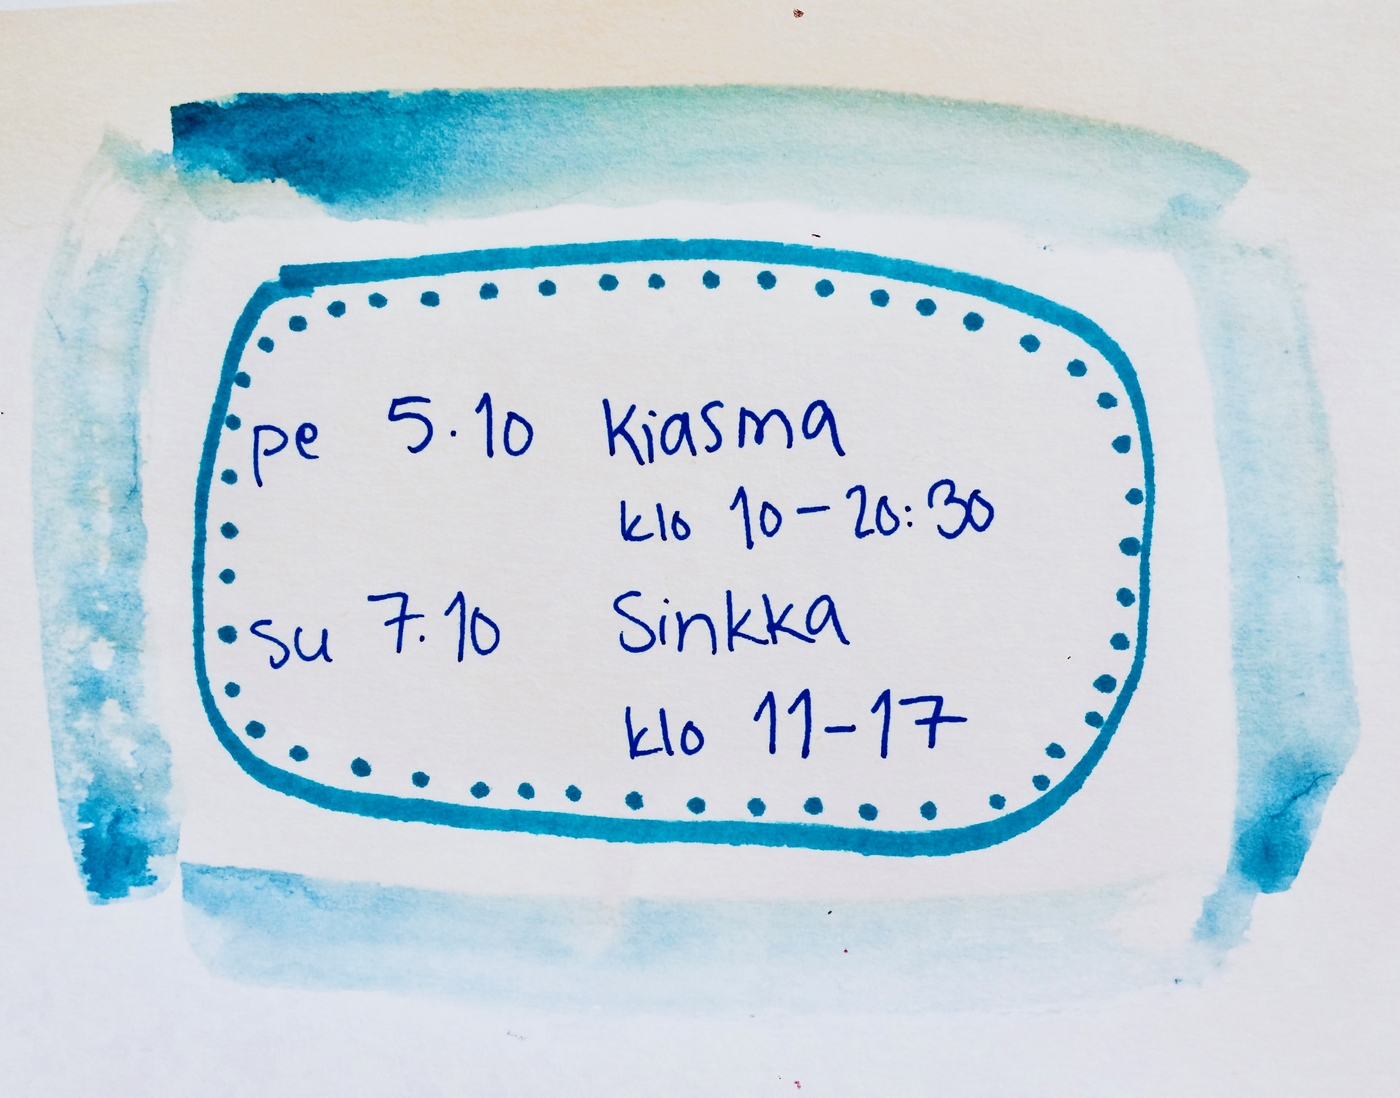 pe 5.10 Kiasma
klo 10-20:30
su 7.10 Sinkka
klo 11-17